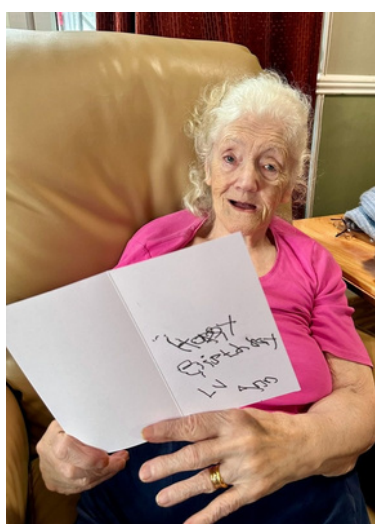 Happy
Birthday
LV Ann